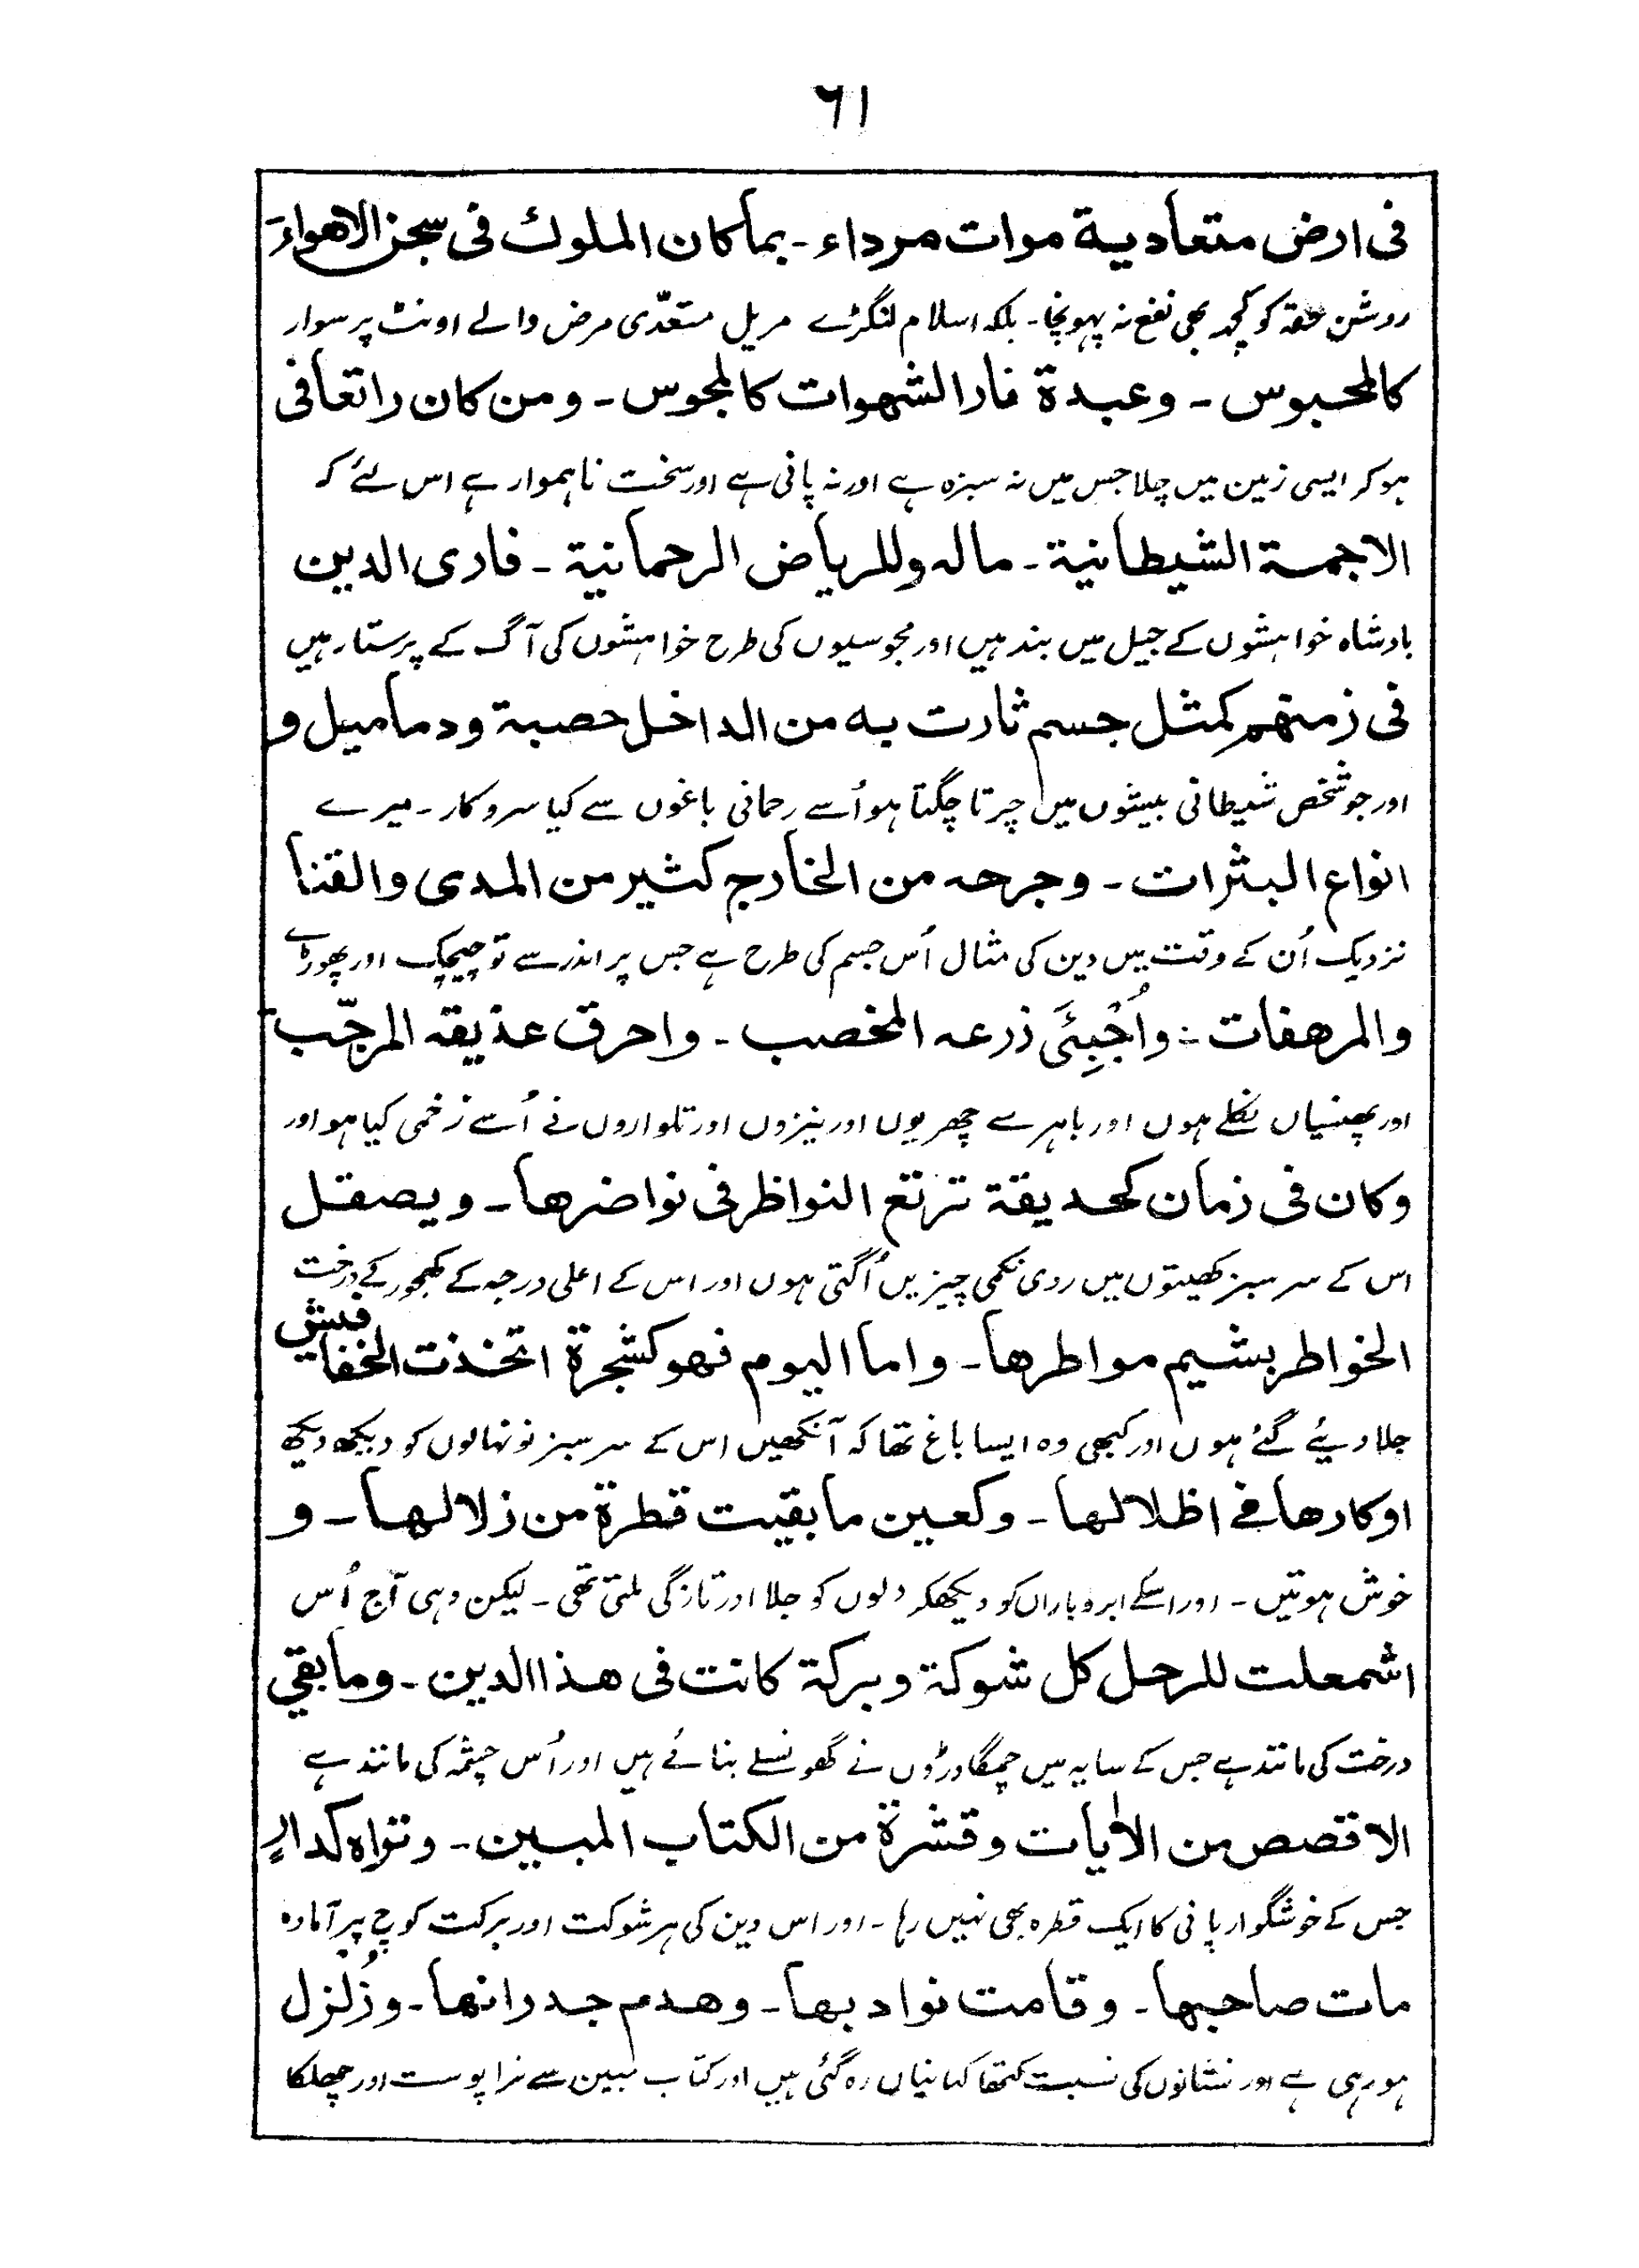 ٦١
فی ارض متعادیة موات مرداء۔ بما کان الملوك فی سجن الاهواء
روشن حقہ کو کچھ بھی نفع نہ پہونچا۔ بلکہ اسلام لنگڑے مریل متعدّی مرض والے اونٹ پر سوار
کالمحبوس ۔ وعبدة نار الشهوات کالمجوس ۔ ومن کان راتعا فی
ہو کر ایسی زمین میں چلا جس میں نہ سبزہ ہے اور نہ پانی ہے اور سخت ناہموار ہے اس لئے کہ
الاجمة الشیطانیة ۔ ماله وللریاض الرحمانیة ۔ فاری الدین
بادشاہ خواہشوں کے جیل میں بند ہیں اور مجوسیوں کی طرح خواہشوں کی آگ کے پرستار ہیں
فی زمنهم کمثل جسم ثارت به من الداخل حصبة ودمامیل و
اور جو شخص شیطانی بیشوں میں چرتا چگتا ہو اُسے رحمانی باغوں سے کیا سروکار ۔ میرے
انواع البثرات ۔ وجرحه من الخارج کثیر من المدی والقنا
نزدیک اُن کے وقت میں دین کی مثال اُس جسم کی طرح ہے جس پر اندر سے تو چیچک اور پھوڑے
والمرهفات ۔ واُجْبِئَی زرعه المخصب ۔ واحرق عذیقه المرجّب
اور پھنسیاں نکلے ہوں اور باہر سے چھریوں اور نیزوں اور تلواروں نے اُسے زخمی کیا ہو اور
وکان فی زمان کحدیقة ترتع النواظر فی نواضرها ۔ ویصقل
اس کے سر سبز کھیتوں میں ردی نکمی چیزیں اُگتی ہوں اور اس کے اعلی درجہ کے کھجور کے درخت
الخواطر بشیم مواطرها ۔ واما الیوم فهو کشجرة اتخذت الخفافیش
جلا دیئے گئے ہوں اور کبھی وہ ایسا باغ تھا کہ آنکھیں اس کے سر سبز نونہالوں کو دیکھ دیکھ
اوکارها فی اظلالها ۔ وکعین ما بقیت قطرة من زلالها ۔ و
خوش ہوتیں ۔ اور اسکے ابر و باراں کو دیکھکر دلوں کو جلا اور تازگی ملتی تھی ۔ لیکن وہی آج اُس
اشمعلت للرحل کل شوکة وبرکة کانت فی هذا الدین ۔ وما بقی
درخت کی مانند ہے جس کے سایہ میں چمگادڑوں نے گھونسلے بنائے ہیں اور اُس چشمہ کی مانند ہے
الا قصص من الاٰیات وقشرة من الکتاب المبین ۔ وتراه کدارٍ
جس کے خوشگوار پانی کا ایک قطرہ بھی نہیں رہا ۔ اور اس دین کی ہر شوکت اور برکت کوچ پر آمادہ
مات صاحبها ۔ وقامت نوادبها ۔ وهدم جدرانها ۔ وزُلزل
ہو رہی ہے اور نشانوں کی نسبت کتھا کہانیاں رہ گئی ہیں اور کتاب مبین سے نرا پوست اور چھلکا